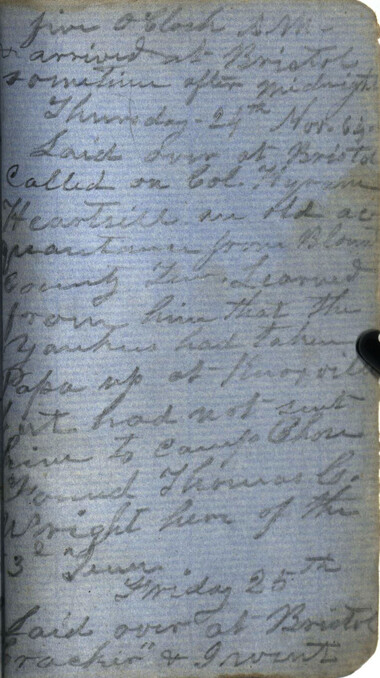 five O'Clock A.M.
& arrived at Bristol
sometime after Midnight
Thursday 24th Nov. 64
Laid over at Bristol
Called on Col. Hyram
Heartsill an old ac
quantance from Blount
County Tenn. Learned
from him that the
Yankees had taken
Papa up at Knoxville
but had not sent
him to Camp Chase
Found Thomas C.
Wright here of the
3d Tenn.
Friday 25th
Laid over at Bristol
"Cracker" & I went